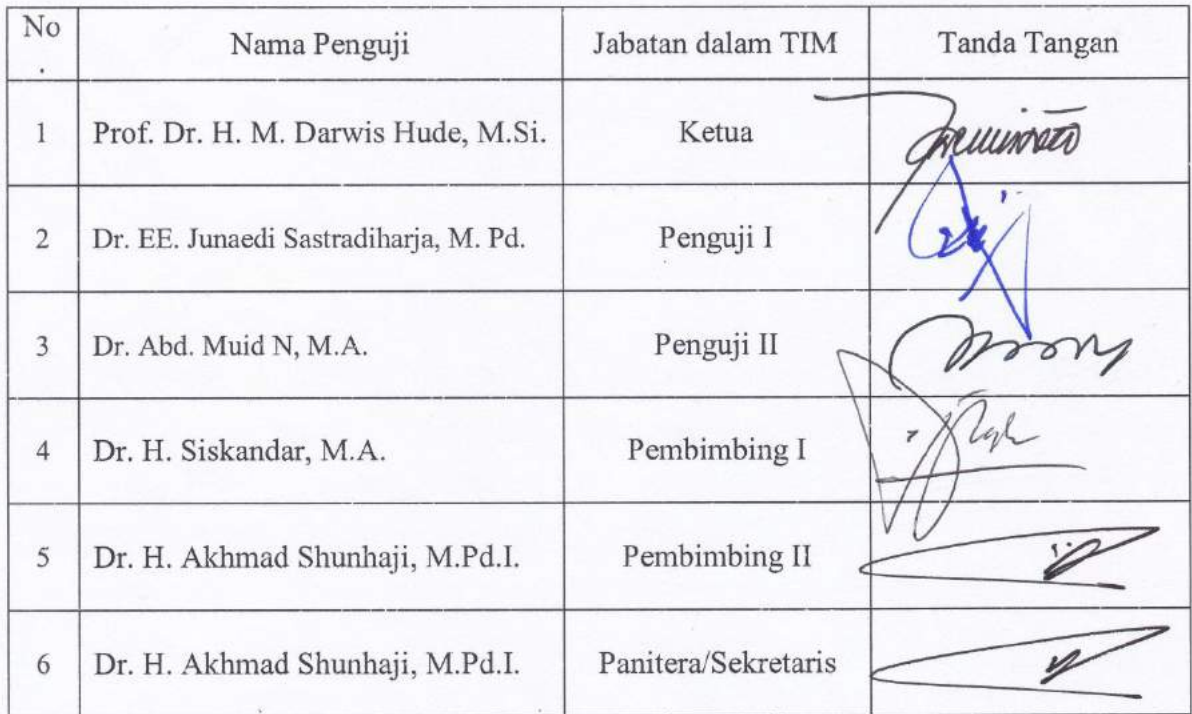 No Nama Penguji Jabatan dalam TIM Tanda Tangan
1 Prof. Dr. H. M. Darwis Hude, M.Si. Ketua
2 Dr. EE. Junaedi Sastradiharja, M. Pd. Penguji I
3 Dr. Abd. Muid N, M.A. Penguji II
4 Dr. H. Siskandar, M.A. Pembimbing I
5 Dr. H. Akhmad Shunhaji, M.Pd.I. Pembimbing II
6 Dr. H. Akhmad Shunhaji, M.Pd.I. Panitera/Sekretaris